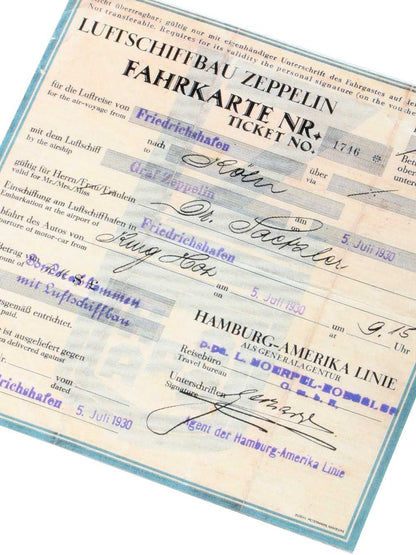 Nicht übertragbar; gültig nur mit eigenhändiger Unterschrift des Fahrgastes auf
Not transferable. Requires for its validity the personal signature (on the
LUFTSCHIFFBAU ZEPPELIN
FAHRKARTE NR.
TICKET NO. 1746 *
für die Luftreise von
for the air-voyage from Friedrichshafen
nach
to Köln über
via
mit dem Luftschiff
by the airship Graf Zeppelin
gültig für Herrn/Frau/Fräulein
valid for Mr./Mrs./Miss Dr.
Einschiffung am Luftschiffhafen in
Embarkation at the airport of Friedrichshafen am
on 5. Juli 1930
bfahrt des Autos von
parture of motor-car from am
on 5. Juli 1930 um
at 9.15 Uhr
Betrag von
ount of Sonderabkommen
mit Luftschiffbau
usgemäß entrichtet.
paid.
te ist ausgeliefert gegen
en delivered against
HAMBURG-AMERIKA LINIE
ALS GENERALAGENTUR
Reisebüro
Travel bureau
G. m. b. H.
Unterschrift
Signature
Agent der Hamburg-Amerika Linie
riedrichshafen
vom
dated 5. Juli 1930